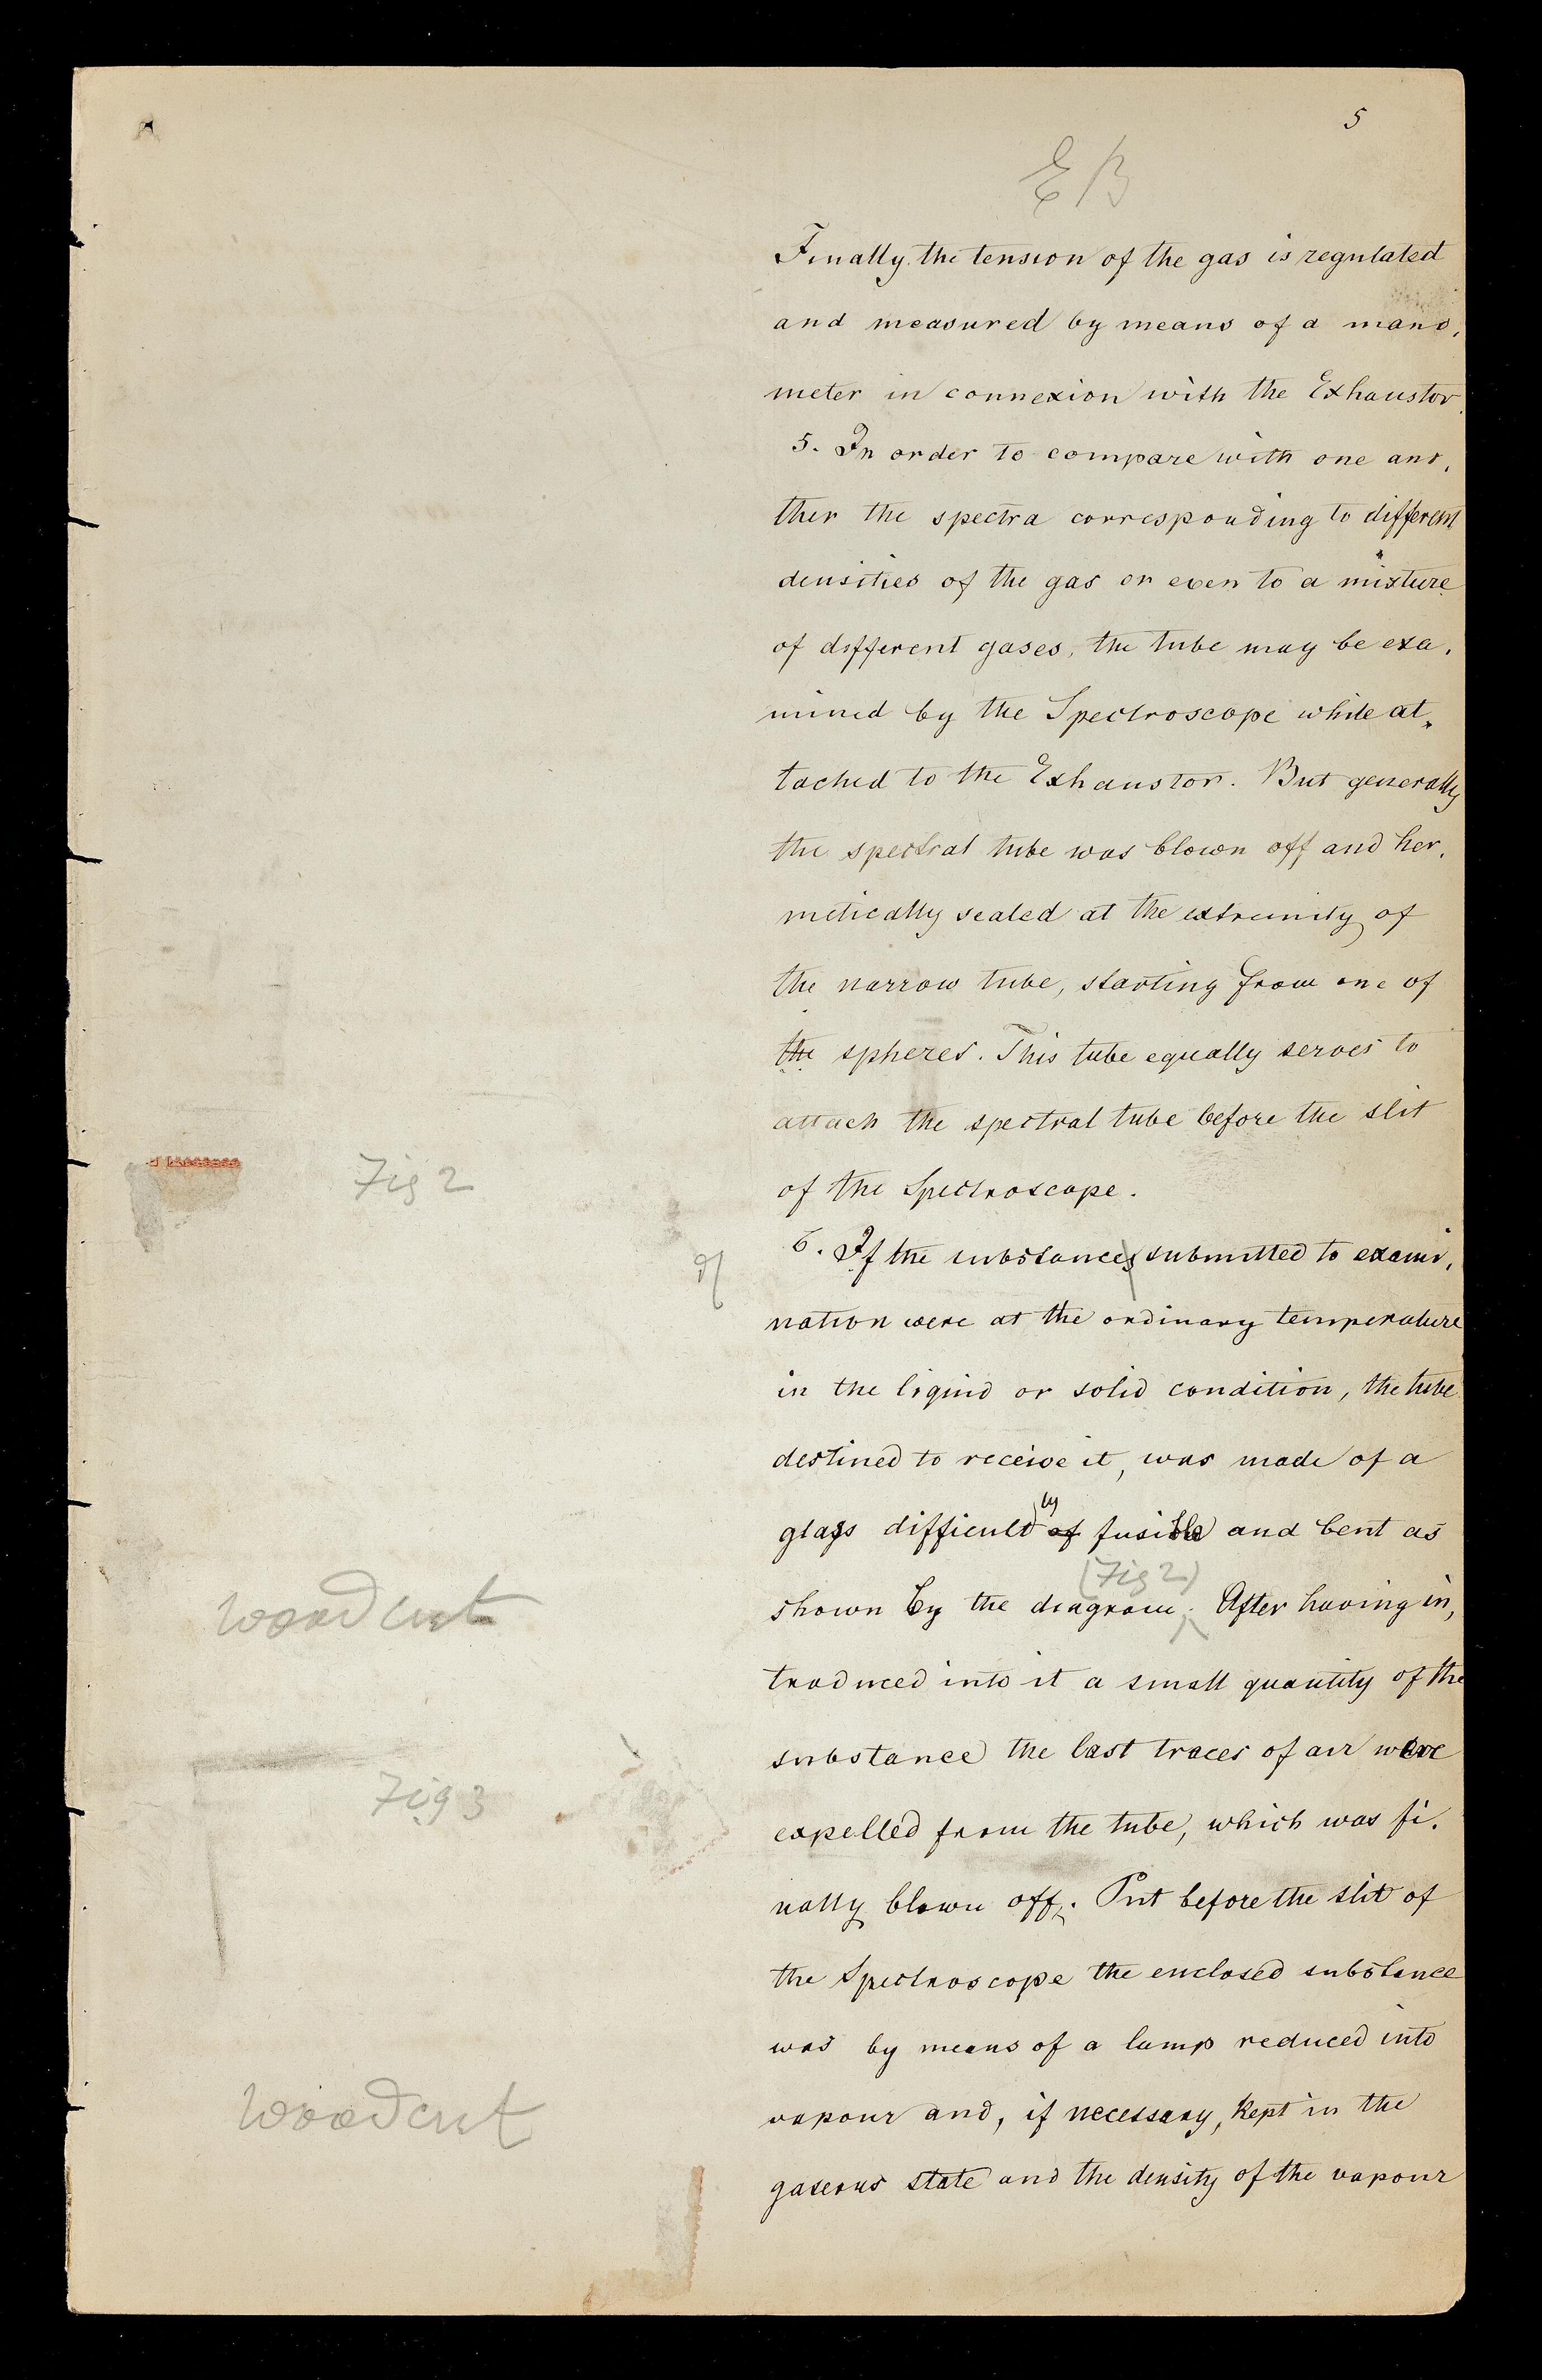 5
EB
Finally the tension of the gas is regulated
and measured by means of a mano,
meter in connexion with the Exhaustor.
5. In order to compare with one ano,
ther the spectra corresponding to different
densities of the gas or even to a mixture
of different gases, the tube may be exa,
mined by the Spectroscope while at,
tached to the Exhaustor. But generally
the spectral tube was blown off and her,
metically sealed at the extremity of
the narrow tube, starting from one of
the spheres. This tube equally serves to
attach the spectral tube before the slit
of the Spectroscope.
Fig 2
6. If the substances submitted to exami,
nation were at the ordinary temperature
in the liquid or solid condition, the tube
destined to receive it, was made of a
ly
glass difficult of fusible and bent as
(Fig 2)
shown by the diagram. After having in,
woodcut
troduced into it a small quantity of the
substance the last traces of air were
Fig 3
expelled from the tube, which was fi,
nally blown off. Put before the slit of
the Spectroscope the enclosed substance
was by means of a lamp reduced into
vapour and, if necessary, kept in the
woodcut
gaseous state and the density of the vapour